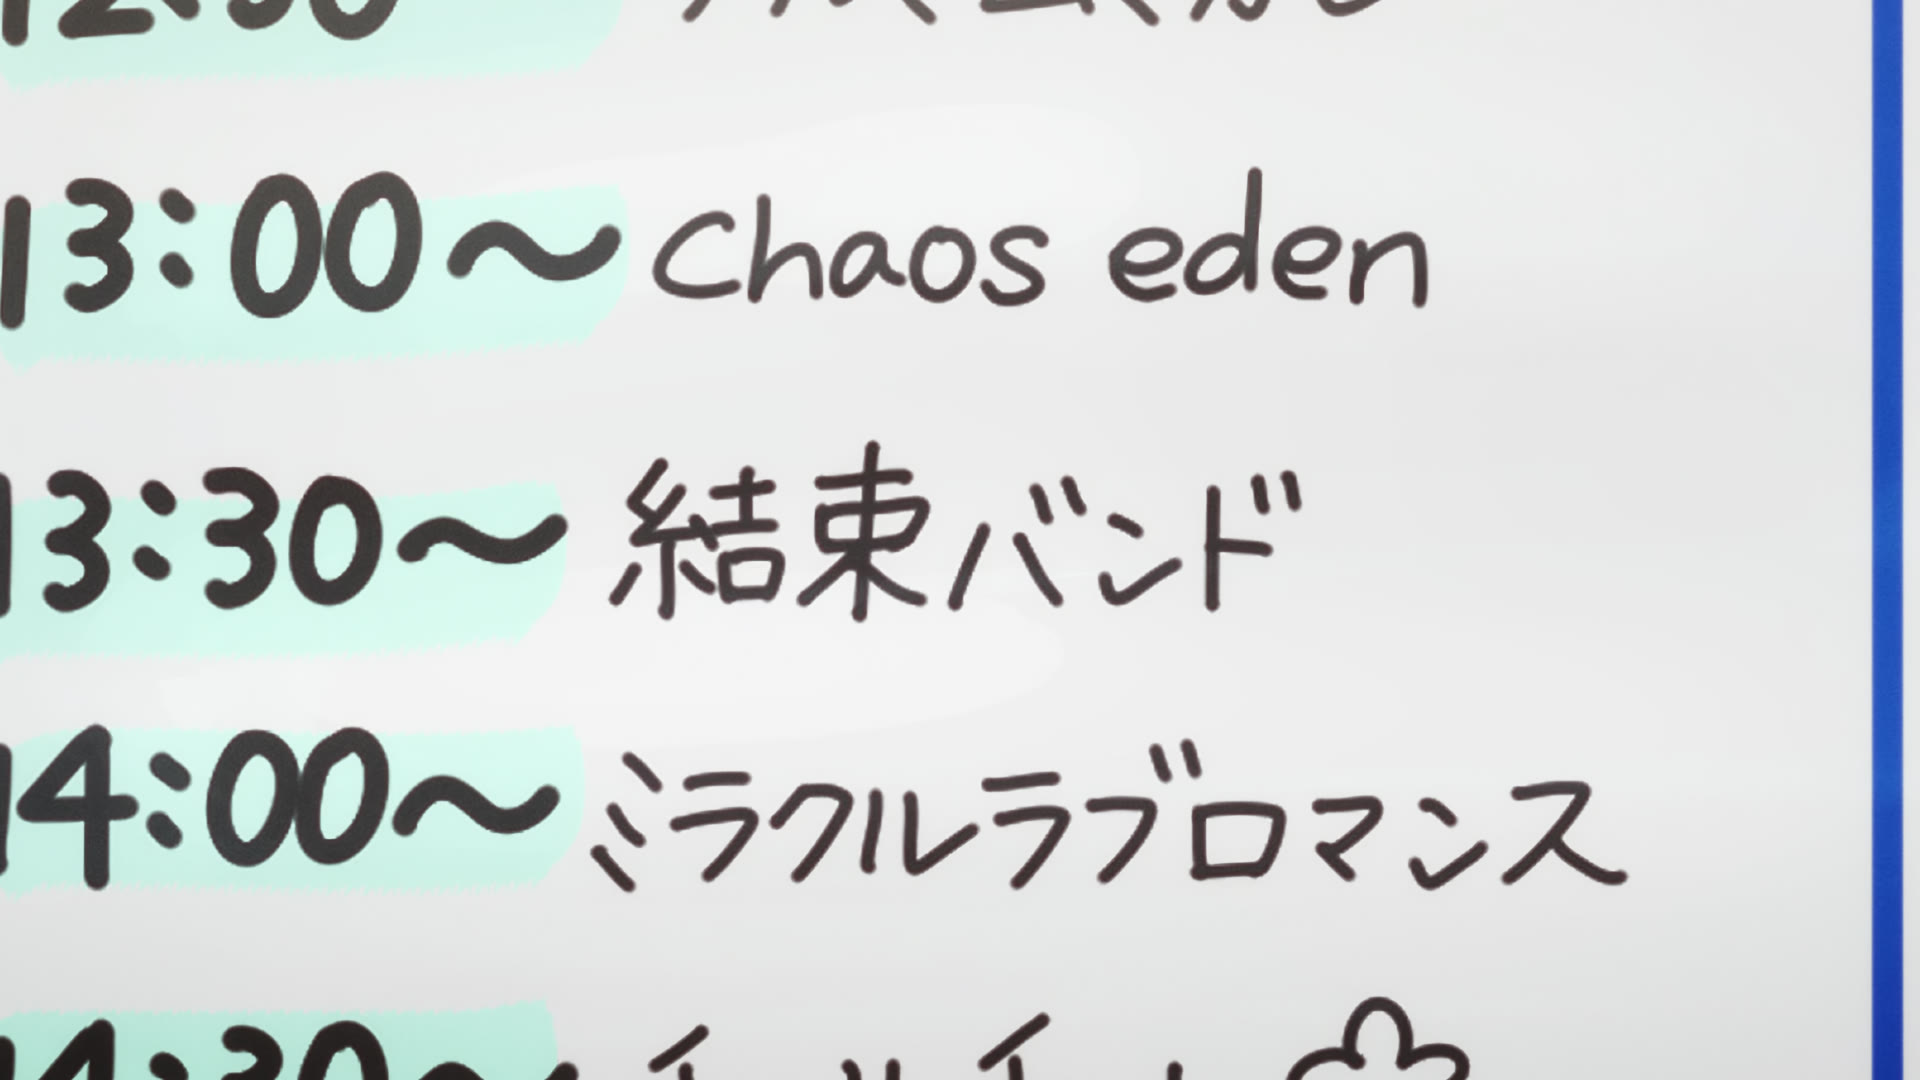 12:30
13:00～ Chaos eden
13:30～ 結束バンド
14:00～ ミラクルラブロマンス
14:30～